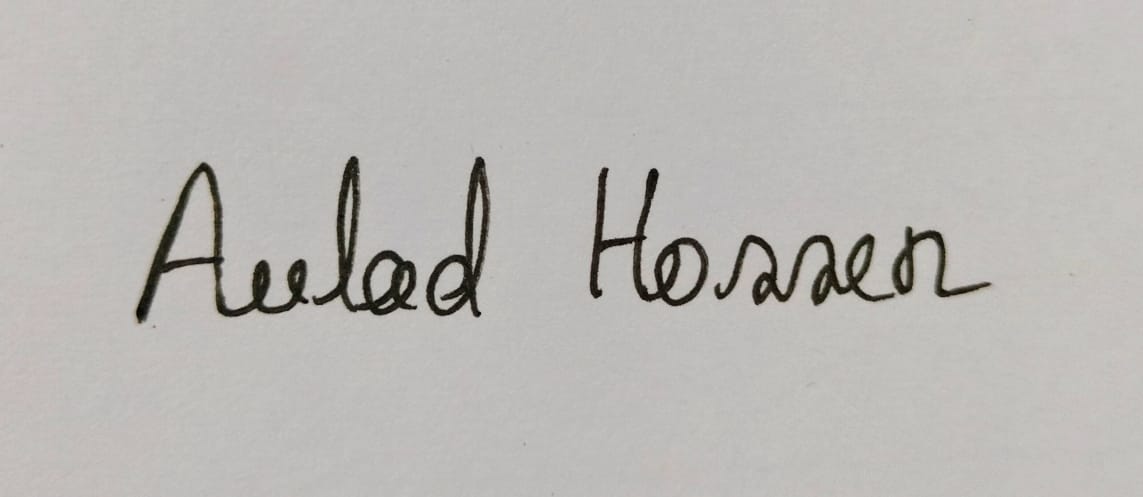 Aulad Hossen